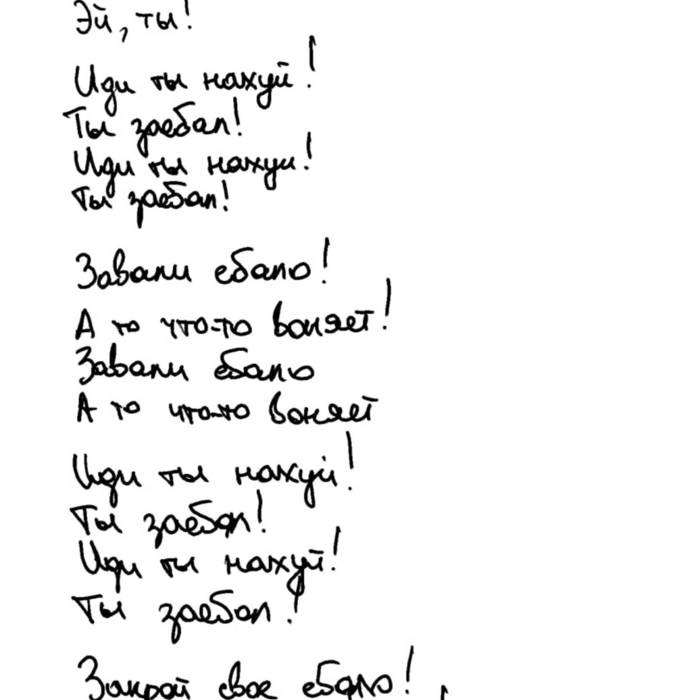 Эй, ты!
Иди ты нахуй!
Ты заебал!
Иди ты нахуй!
Ты заебал!
Завали ебало!
А то что-то воняет!
Завали ебало
А то что-то воняет
Иди ты нахуй!
Ты заебал!
Иди ты нахуй!
Ты заебал!
Закрой свое ебало!